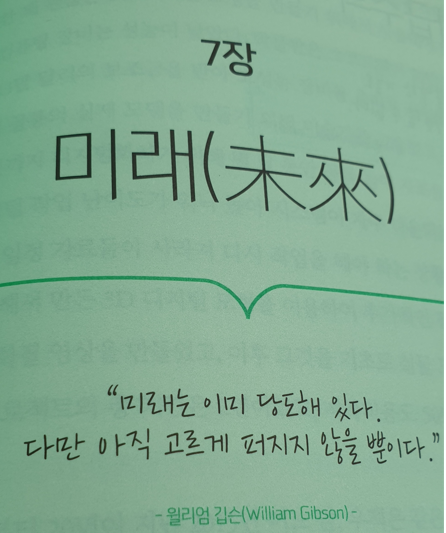 7장
미래(未來)
“미래는 이미 당도해 있다.
다만 아직 고르게 퍼지지 않을 뿐이다.”
- 윌리엄 깁슨(William Gibson) -